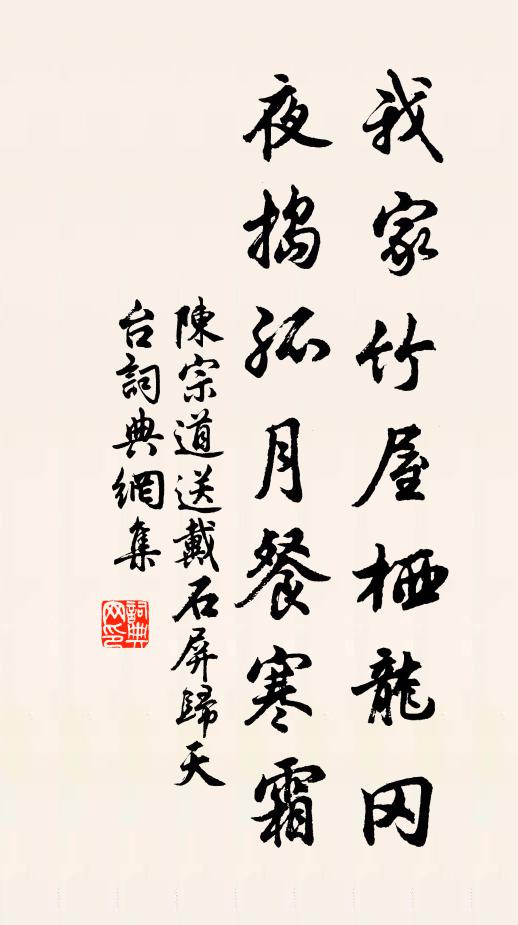 我家竹屋栖龍冈
夜搗孤月餐寒霜
陳宗道送戴石屏歸天
台詞典網集
詞典网印